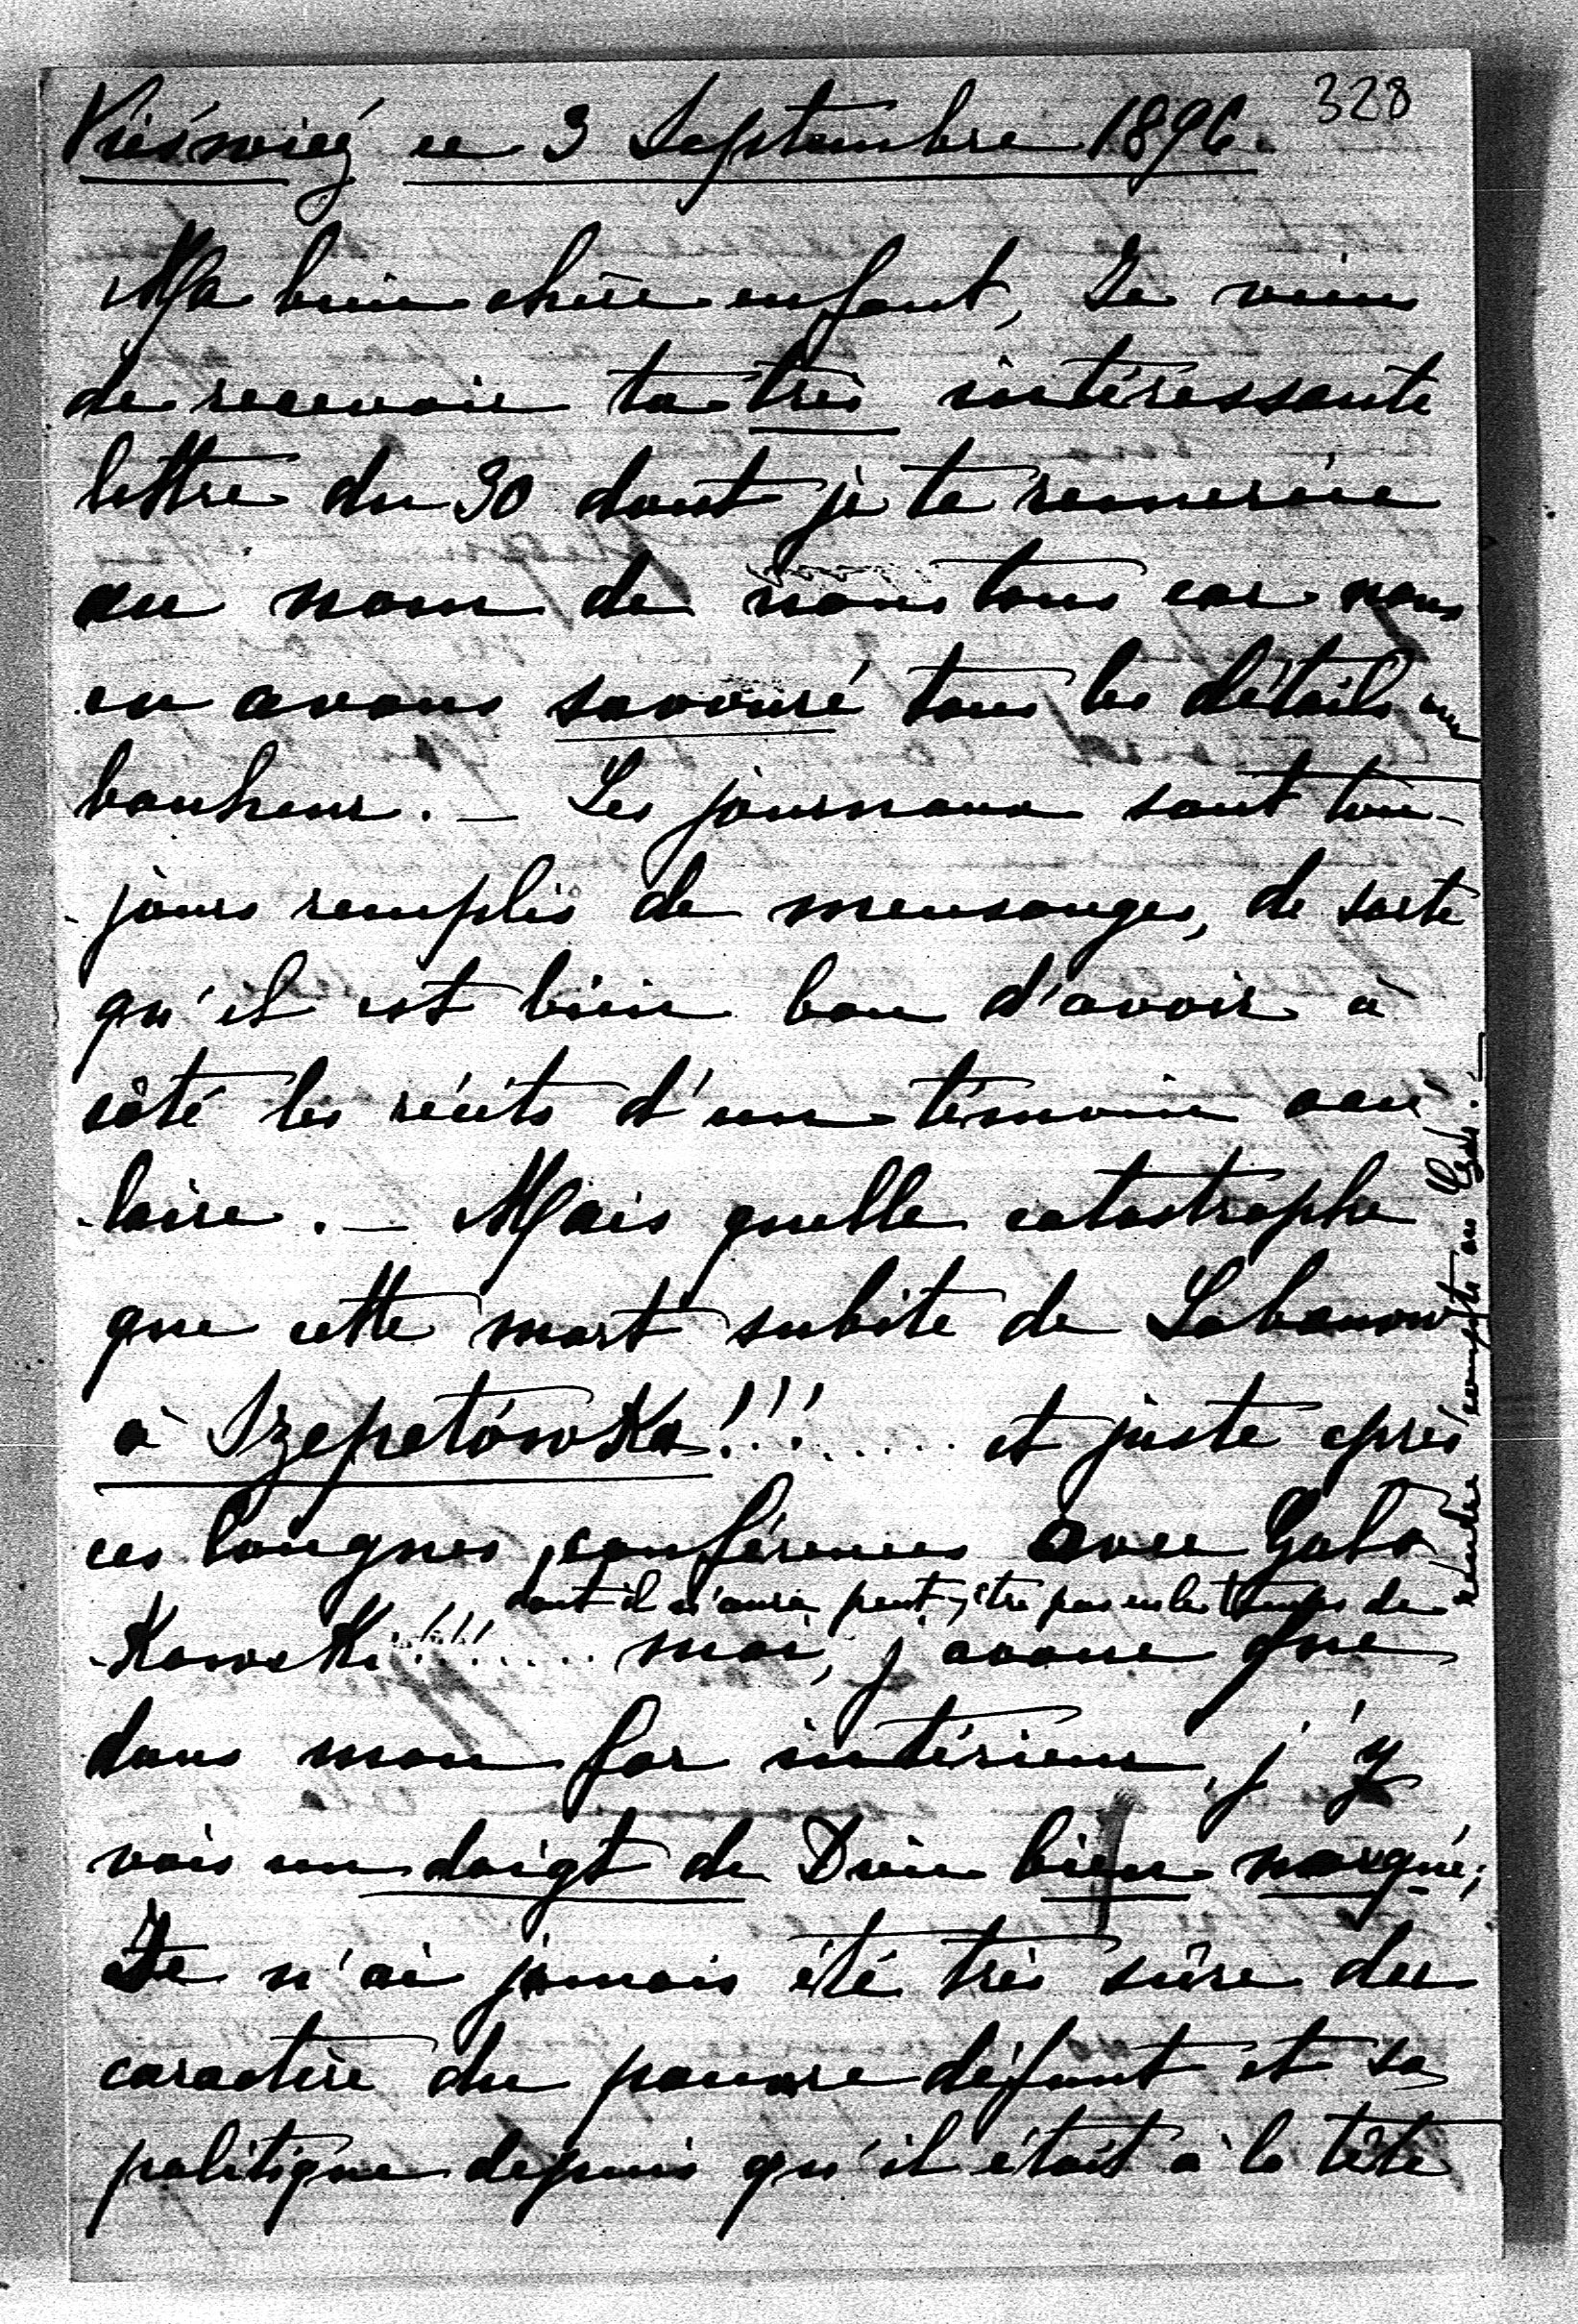 328
Nieśwież ce 3 Septembre 1896.
Ma bien chère enfant, Je viens
de recevoir ta très intéressante
lettre du 30 dont je te remercie
au nom de nous tous car nous
en avons savouré tous les détails avec
bonheur. — Les journaux sont tou-
-jours remplis de mensonges, de sorte
qu'il est bien bon d'avoir à
côté les récits d'un témoin ocu
-laire. — Mais quelle catastrophe
que cette mort subite de Lobanow
à Szepetówka!!!..... et juste après
ces longues conférences avec Goło
-kowski!!!..... moi, j'avoue que
dont il n'aura peut-être pas eu le temps de
rendre compte au
dans mon for intérieur, j'y
vois un doigt de Dieu bien marqué;
Je n'ai jamais été très sûre du
caractère du pauvre défunt et sa
politique depuis qu'il était à la tête